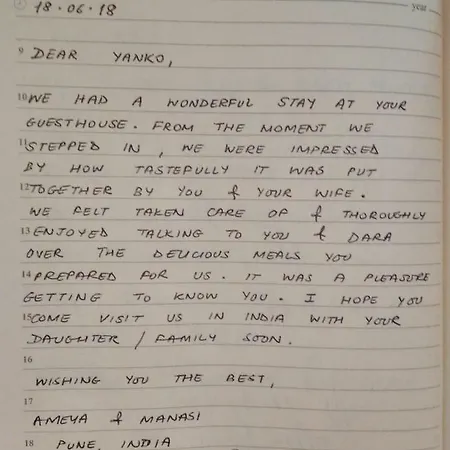 18.06.18
year
9 DEAR YANKO,
10 WE HAD A WONDERFUL STAY AT YOUR
GUESTHOUSE. FROM THE MOMENT WE
11 STEPPED IN, WE WERE IMPRESSED
BY HOW TASTEFULLY IT WAS PUT
12 TOGETHER BY YOU & YOUR WIFE.
WE FELT TAKEN CARE OF & THOROUGHLY
13 ENJOYED TALKING TO YOU & DARA
OVER THE DELICIOUS MEALS YOU
14 PREPARED FOR US. IT WAS A PLEASURE
GETTING TO KNOW YOU. I HOPE YOU
15 COME VISIT US IN INDIA WITH YOUR
DAUGHTER / FAMILY SOON.
16
WISHING YOU THE BEST,
17
AMEYA & MANASI
18 PUNE, INDIA